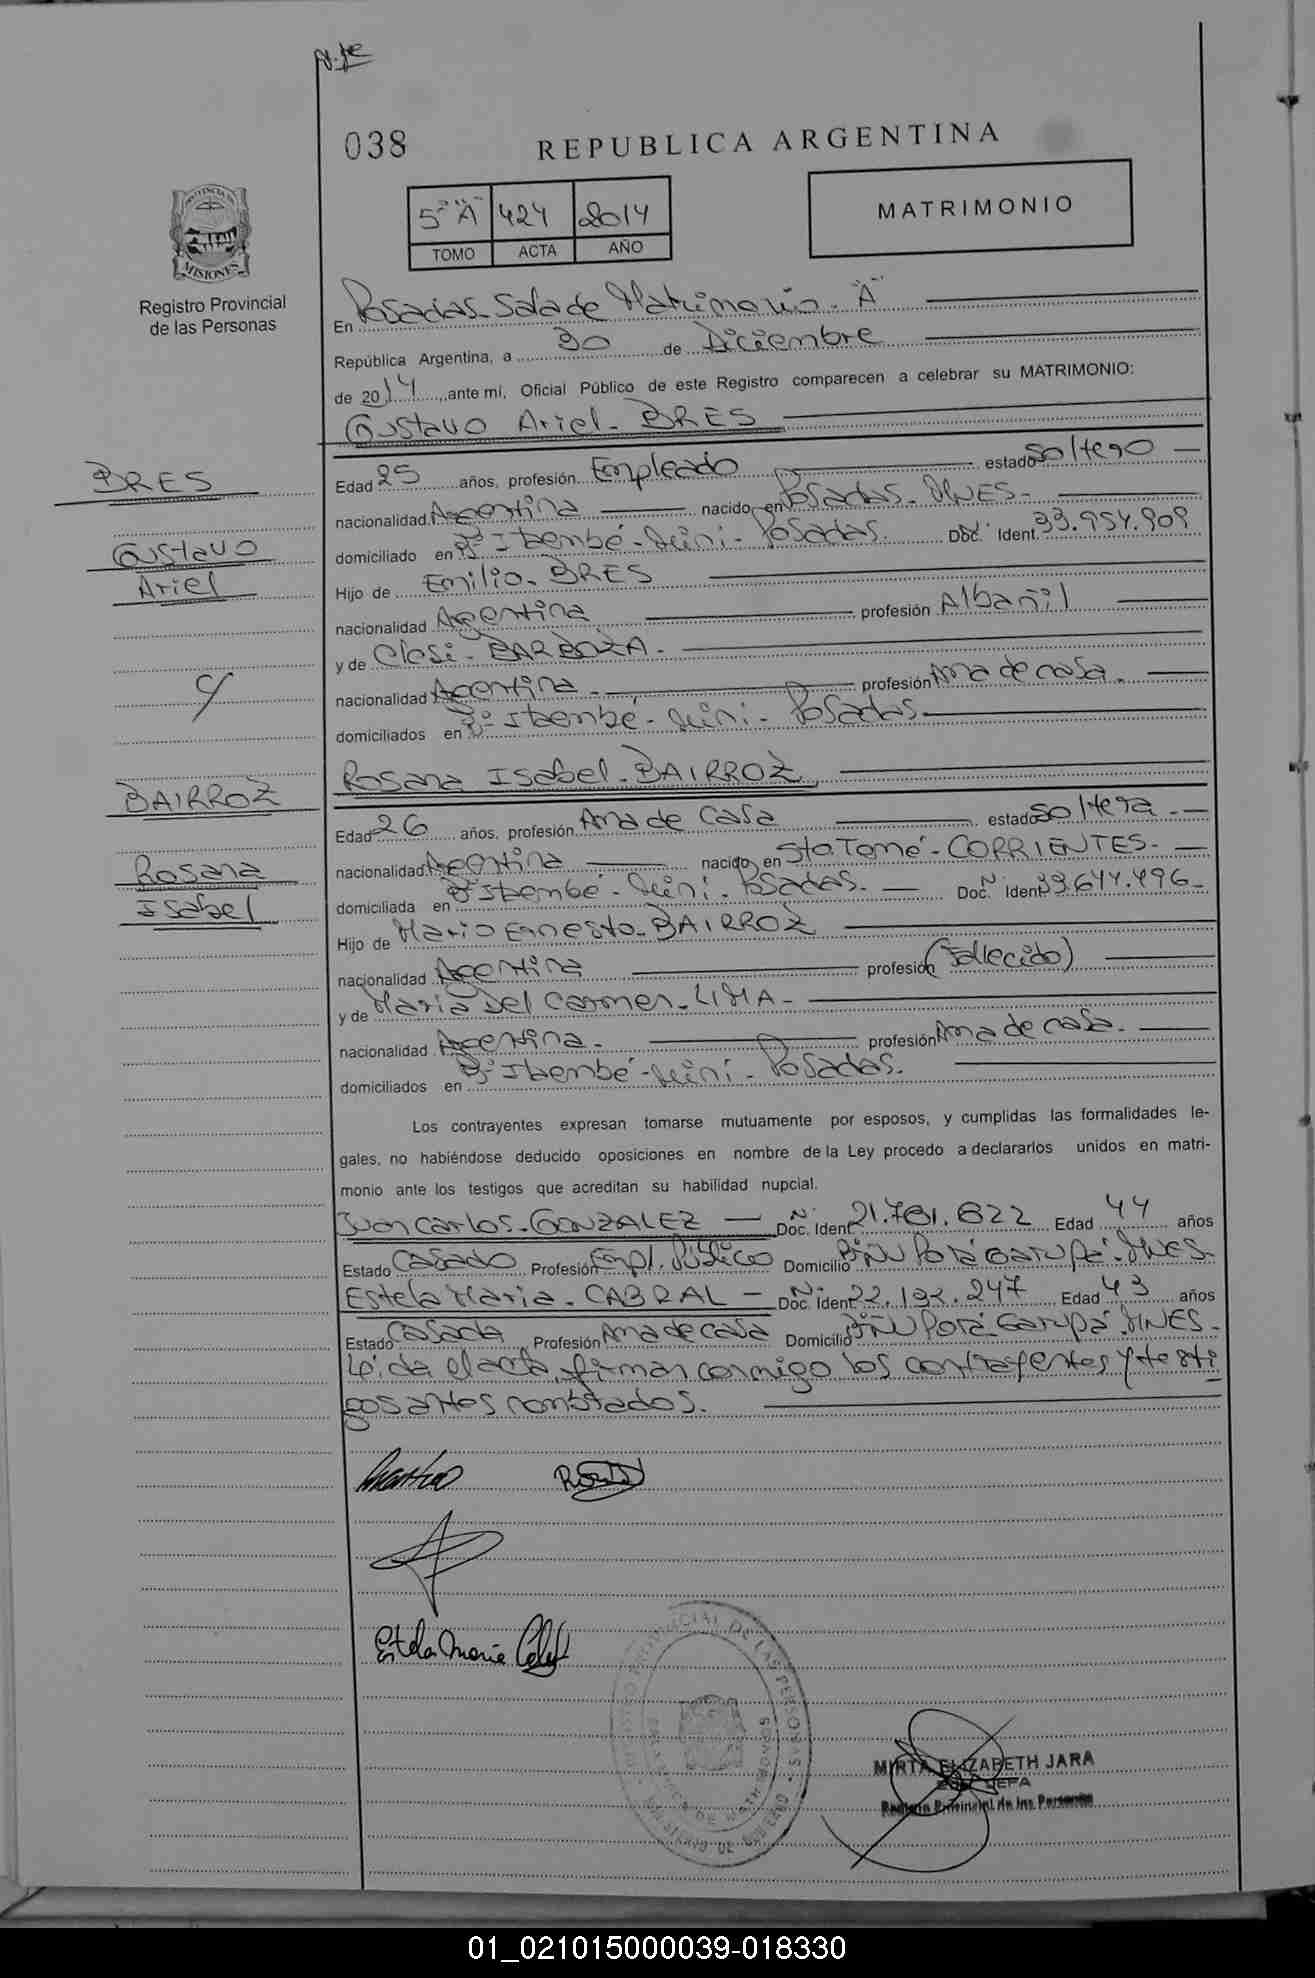 038
REPUBLICA ARGENTINA
5º "A" 424 2014
TOMO ACTA AÑO
MATRIMONIO
PROVINCIA DE
MISIONES
Registro Provincial
de las Personas
En Posadas-Sala de Matrimonio-"A"
República Argentina, a 30 de Diciembre
de 2014, ante mí, Oficial Público de este Registro comparecen a celebrar su MATRIMONIO:
Gustavo Ariel-BRES
BRES
Gustavo
Ariel
c/
BAIRROZ
Rosana
Isabel
Edad 25 años, profesión Empleado estado soltero
nacionalidad Argentina nacido en Posadas-Mnes-
domiciliado en Bº Itaembé-Miní-Posadas. Doc. Nº Ident. 33.954.909
Hijo de Emilio-BRES
nacionalidad Argentina profesión Albañil
y de Clesi-BARBOZA-
nacionalidad Argentina- profesión Ama de casa.
domiciliados en Bº Itaembé-Miní-Posadas
Rosana Isabel-BAIRROZ
Edad 26 años, profesión Ama de casa estado soltera-
nacionalidad Argentina nacido en Sto. Tomé-CORRIENTES-
domiciliada en Bº Itaembé-Miní-Posadas. Doc. Nº Ident 33.644.496-
Hijo de Mario Ernesto-BAIRROZ
nacionalidad Argentina profesión (Fallecido)
y de María Del Carmen-LIMA-
nacionalidad Argentina- profesión Ama de casa.
domiciliados en Bº Itaembé-Miní-Posadas.
Los contrayentes expresan tomarse mutuamente por esposos, y cumplidas las formalidades le-
gales, no habiéndose deducido oposiciones en nombre de la Ley procedo a declararlos unidos en matri-
monio ante los testigos que acreditan su habilidad nupcial.
Juan Carlos-GONZALEZ Doc. Nº Ident. 21.781.622 Edad 44 años
Estado Casado Profesión Empl. Público Domicilio Bº Ñu Porá Garupá-Mnes-
Estela Maria-CABRAL- Doc. Nº Ident. 22.192.247 Edad 43 años
Estado Casada Profesión Ama de casa Domicilio Bº Ñu Porá-Garupá-Mnes-
Leída el acta, firman conmigo los contrayentes y testi
gos antes nombrados.
Estela Maria
REGISTRO PROVINCIAL DE LAS PERSONAS
MINISTERIO DE GOBIERNO
MISIONES
MIRTA ELIZABETH JARA
JEFA
Registro Provincial de las Personas
01_021015000039-018330